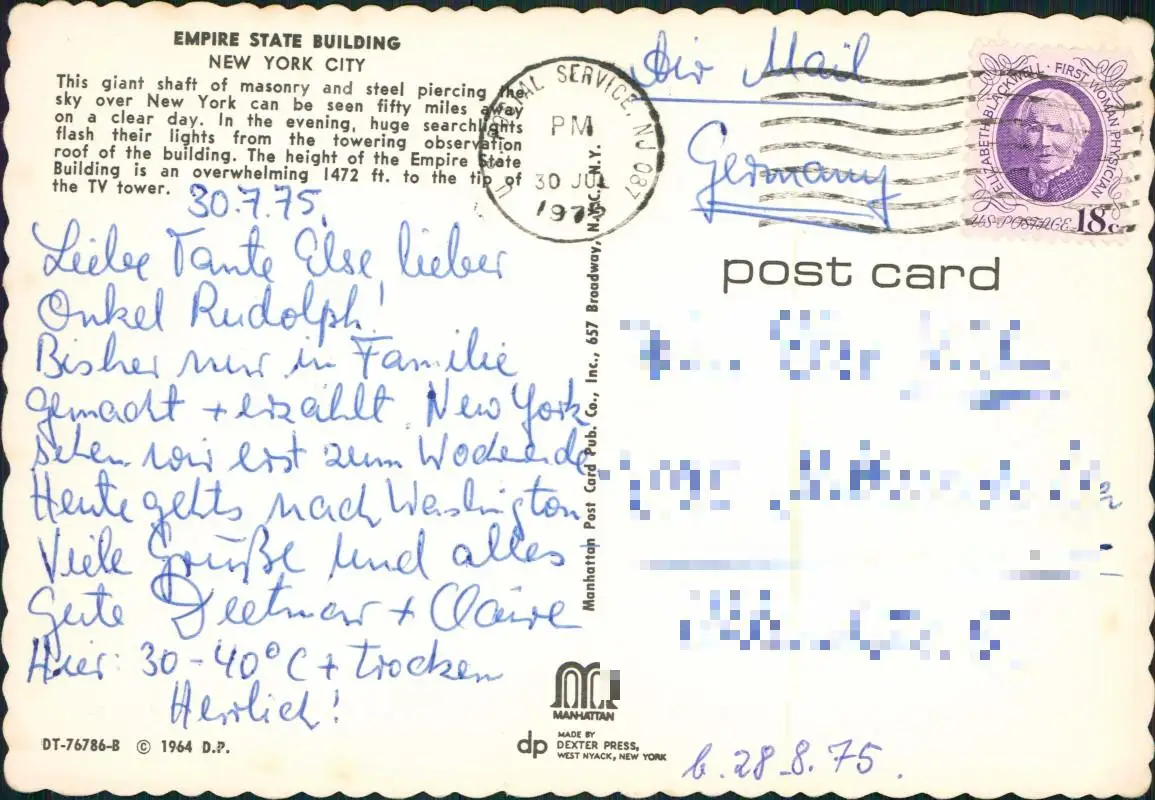 EMPIRE STATE BUILDING
NEW YORK CITY
This giant shaft of masonry and steel piercing the
sky over New York can be seen fifty miles away
on a clear day. In the evening, huge searchlights
flash their lights from the towering observation
roof of the building. The height of the Empire State
Building is an overwhelming 1472 ft. to the tip of
the TV tower.
30.7.75.
Liebe Tante Else, lieber
Onkel Rudolph!
Bisher nur in Familie
gemacht + erzählt. New York
sehen wir erst zum Wochenende
Heute gehts nach Washington
Viele Grüße und alles
Gute Dietmar + Claire
Hier: 30-40°C + trocken
Herrlich!
DT-76786-B © 1964 D.P.
POSTAL SERVICE, NJ 087
PM
30 JUL
1975
Manhattan Post Card Pub. Co., Inc., 657 Broadway, N.Y.C., N.Y.
MANHATTAN
dp MADE BY
DEXTER PRESS,
WEST NYACK, NEW YORK
Air Mail
Germany
ELIZABETH BLACKWELL · FIRST WOMAN PHYSICIAN
US POSTAGE 18c
post card
b. 28.8.75.